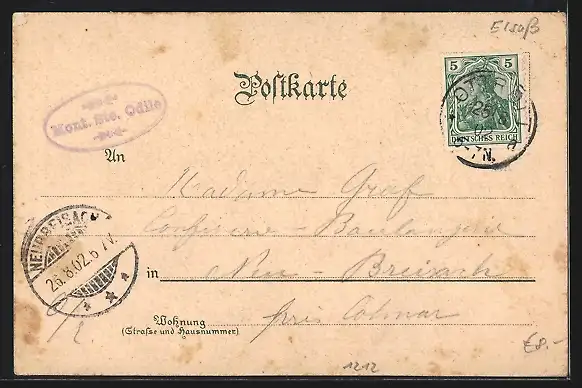 Elsaß
5 5
DEUTSCHES REICH
25
N.
Postkarte
Mont. Ste. Odile
An
Madame Graf
Confiserie - Boulangerie
in Neu - Breisach
près Colmar
NEUBREISACH
26.8.02.5-7V.
Wohnung
(Strasse und Hausnummer)
€8.-
1212